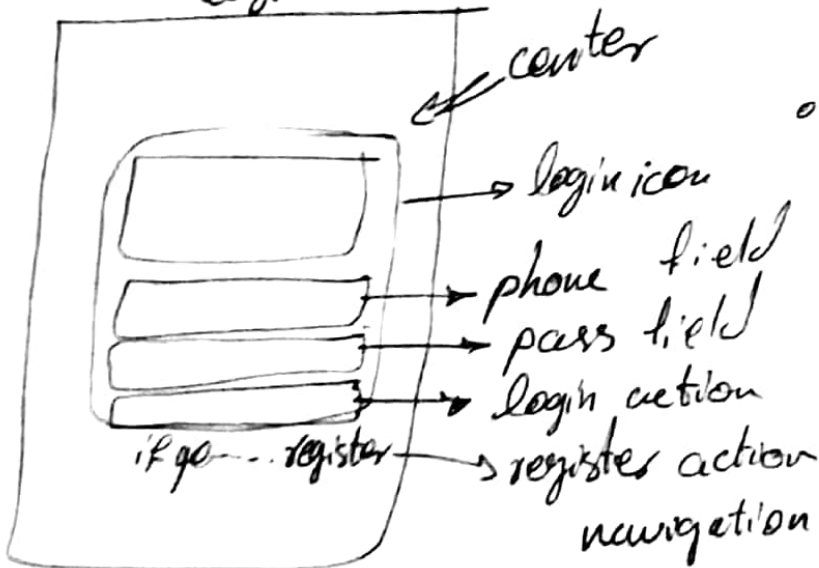 center
login icon
phone field
pass field
login action
register
register action
navigation